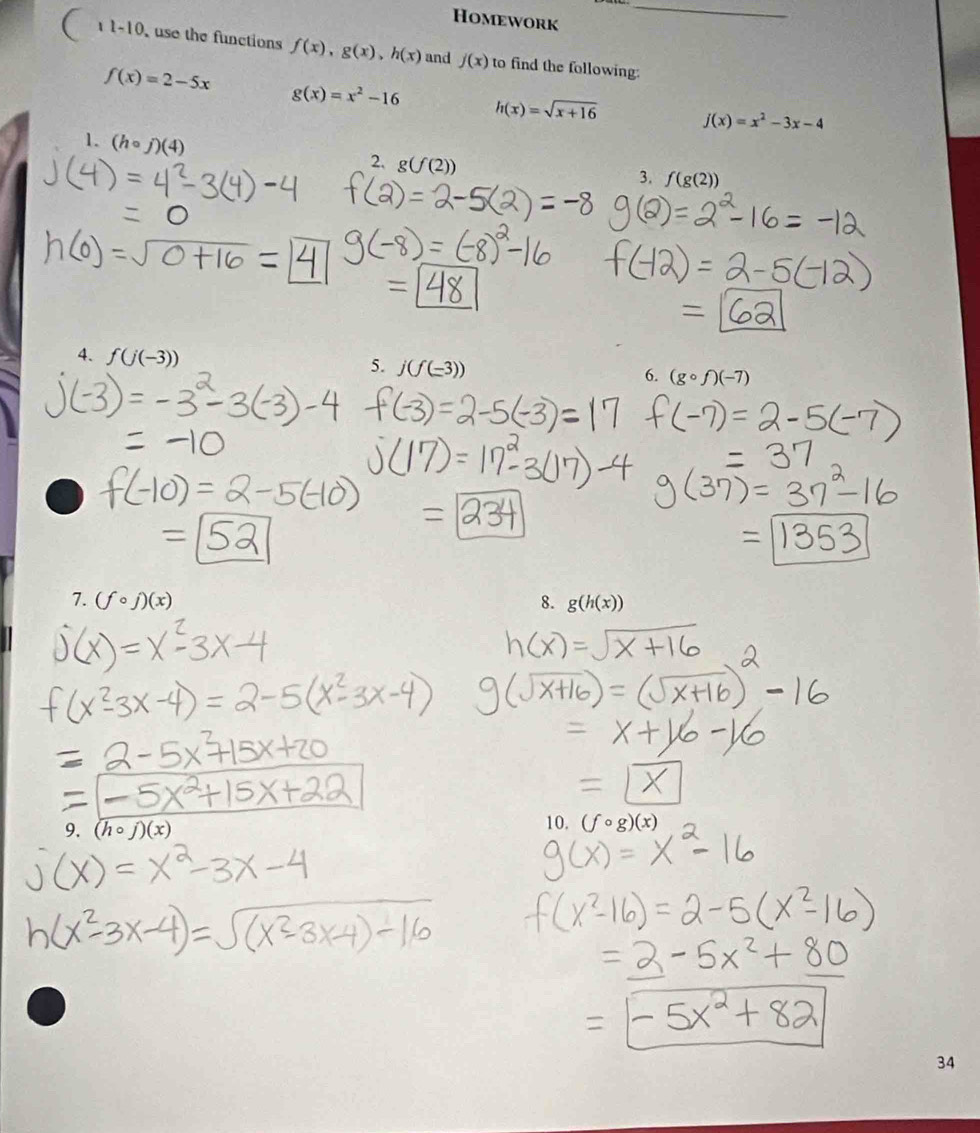 HOMEWORK
1-10, use the functions f(x), g(x), h(x) and j(x) to find the following:
f(x) = 2 – 5x g(x) = x² – 16 h(x) = √(x + 16) j(x) = x² – 3x – 4
1. (h∘j)(4)
j(4) = 4² - 3(4) - 4
= 0
h(0) = √(0+16) = 4
2. g(f(2))
f(2) = 2 - 5(2) = -8
g(-8) = (-8)² - 16
= 48
3. f(g(2))
g(2) = 2² - 16 = -12
f(-12) = 2 - 5(-12)
= 62
4. f(j(–3))
j(-3) = -3² - 3(-3) - 4
= -10
f(-10) = 2 - 5(-10)
= 52
5. j(f(–3))
f(-3) = 2 - 5(-3) = 17
j(17) = 17² - 3(17) - 4
= 234
6. (g∘f)(–7)
f(-7) = 2 - 5(-7)
= 37
g(37) = 37² - 16
= 1353
7. (f∘j)(x)
j(x) = x² - 3x - 4
f(x² - 3x - 4) = 2 - 5(x² - 3x - 4)
= 2 - 5x² + 15x + 20
= -5x² + 15x + 22
8. g(h(x))
h(x) = √(x + 16)
g(√(x+16)) = (√(x+16))² - 16
= x + 16 - 16
= x
9. (h∘j)(x)
j(x) = x² - 3x - 4
h(x² - 3x - 4) = √((x² - 3x - 4) - 16)
10. (f∘g)(x)
g(x) = x² - 16
f(x² - 16) = 2 - 5(x² - 16)
= 2 - 5x² + 80
= -5x² + 82
34